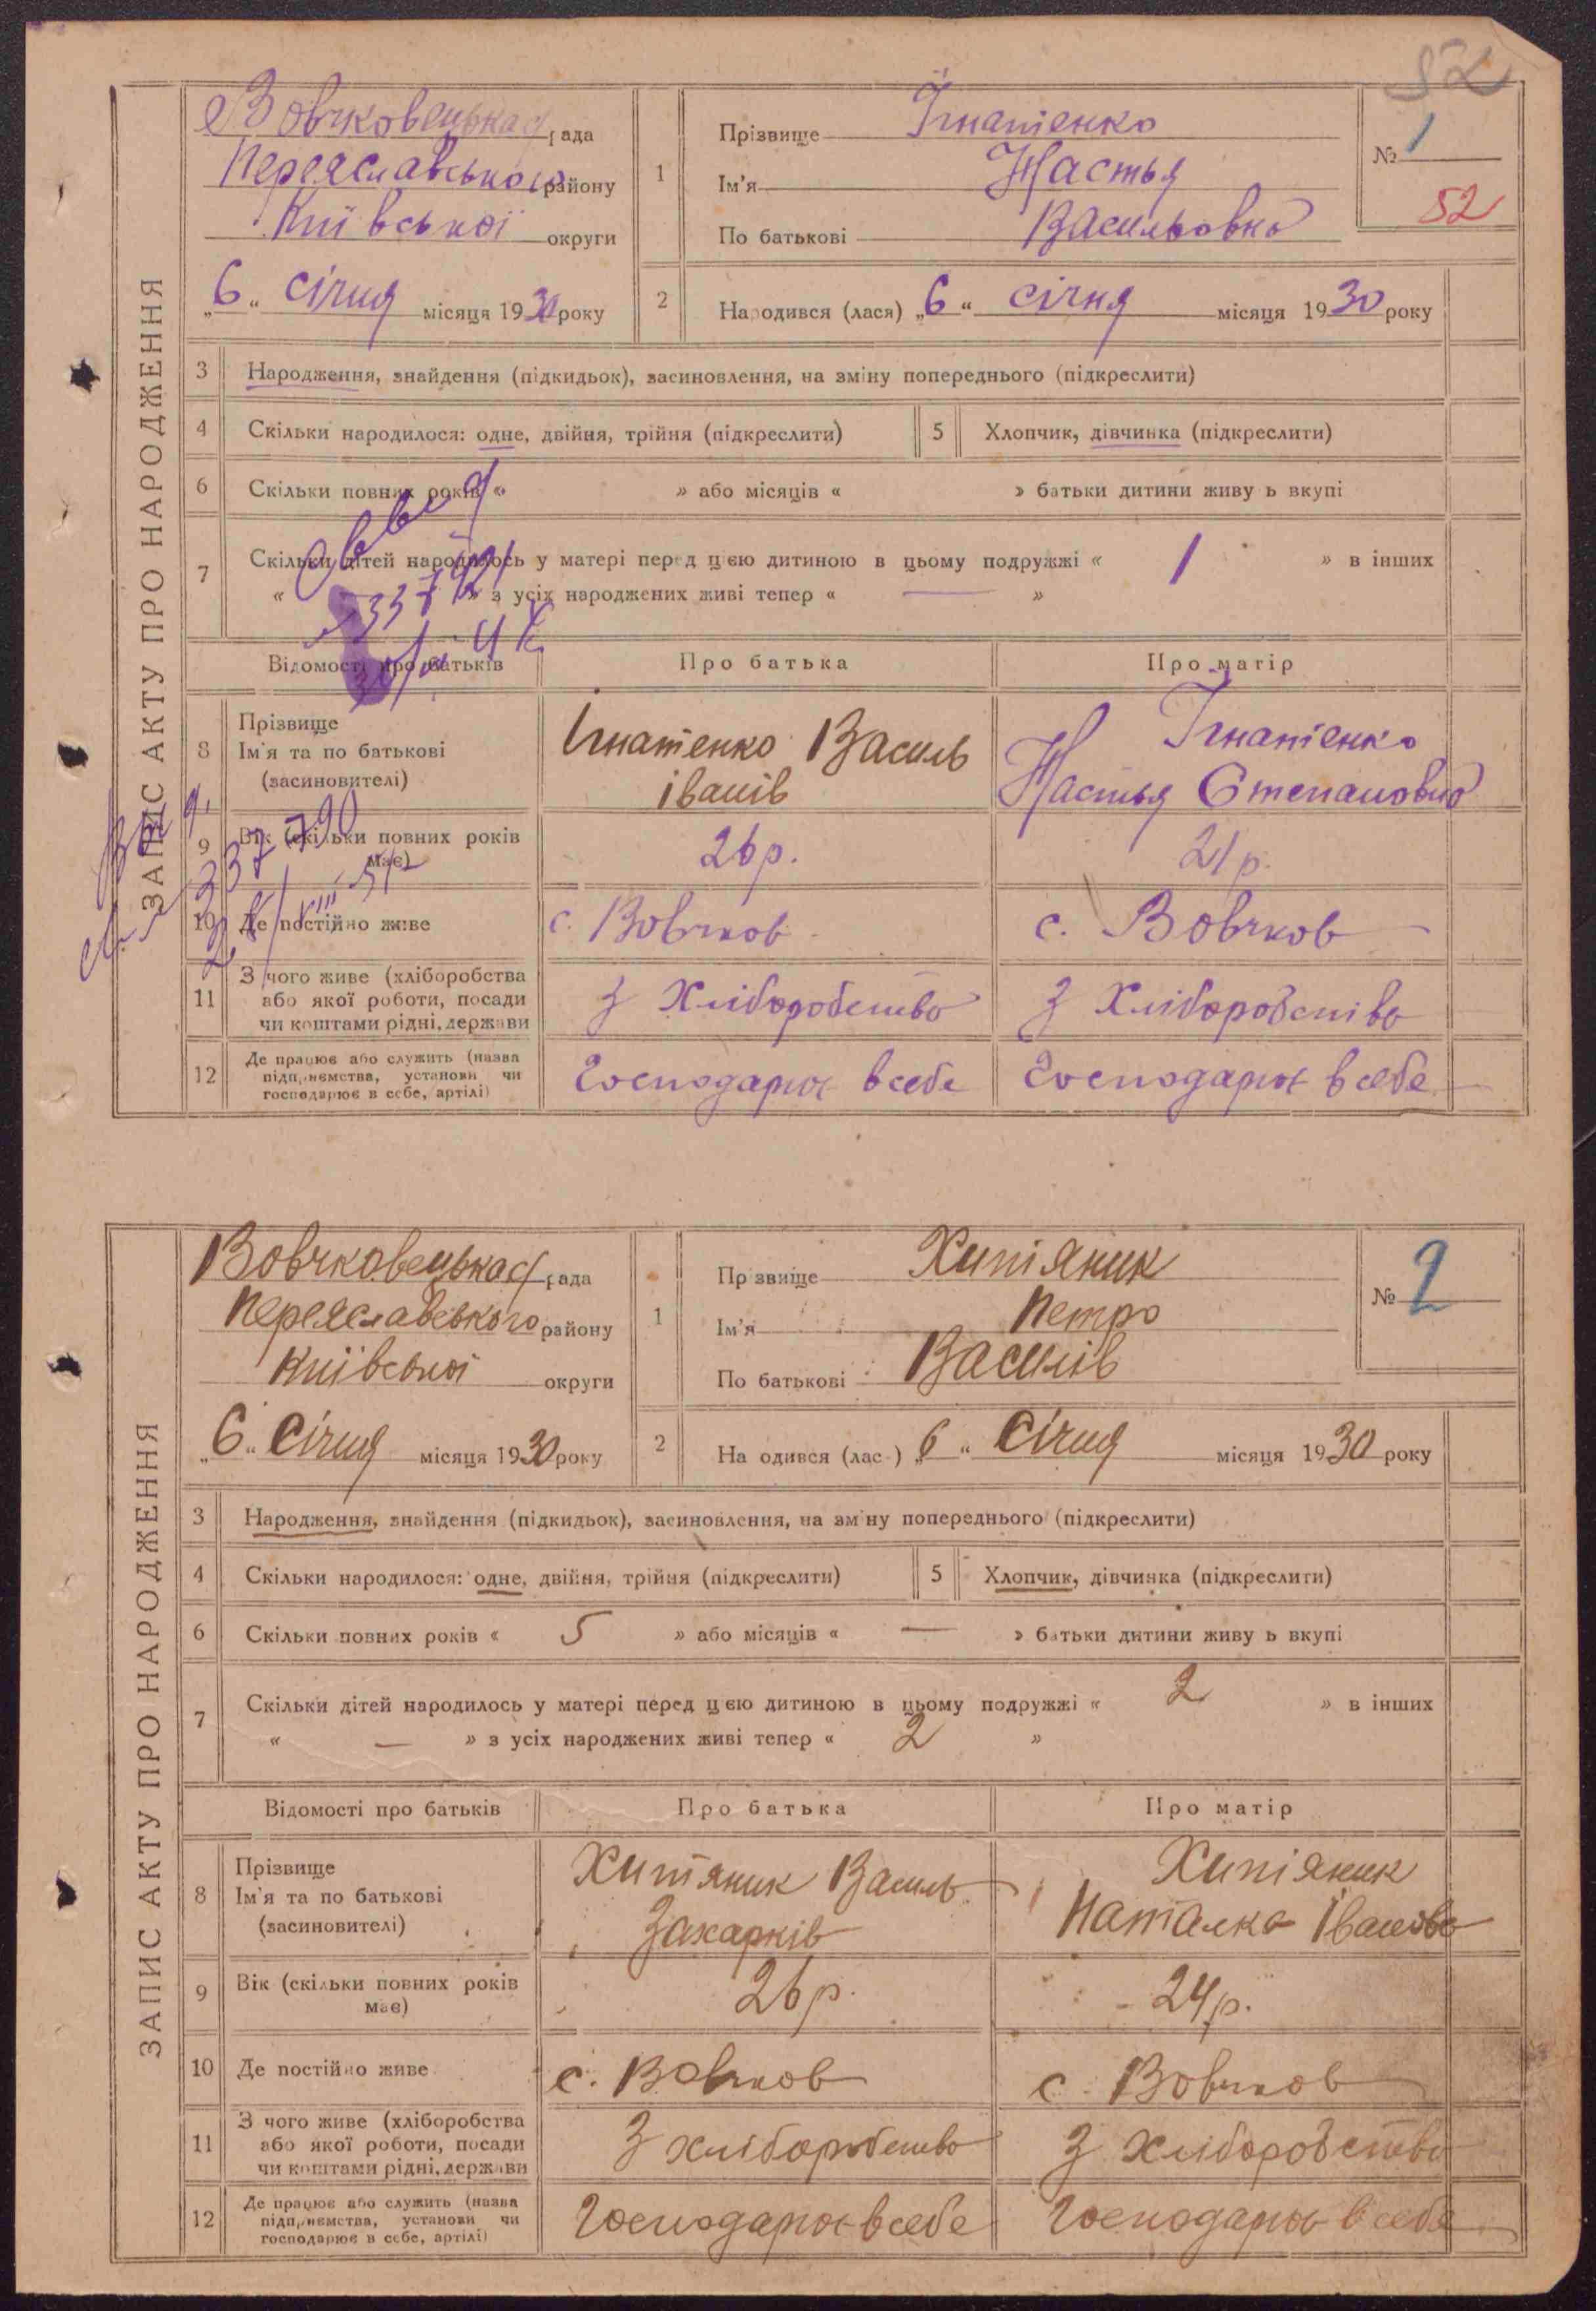 52
ЗАПИС АКТУ ПРО НАРОДЖЕННЯ
Вовчковецькая рада
Переяславського району
Київської округи
„6“ січня місяця 1930 року
1
Прізвище Ігнатенко
Ім'я Настья
По батькові Васильовна
№ 1
52
2
Народився (лася) „6“ січня місяця 1930 року
3 Народження, знайдення (підкидьок), засиновлення, на зміну попереднього (підкреслити)
4 Скільки народилося: одне, двійня, трійня (підкреслити)
5 Хлопчик, дівчинка (підкреслити)
6 Скільки повних років « » або місяців « » батьки дитини живу ь вкупі
7 Скільки дітей народилось у матері перед цією дитиною в цьому подружжі « 1 » в інших
« » з усіх народжених живі тепер « — »
Відомості про батьків
Про батька
Про матір
8 Прізвище
Ім'я та по батькові
(засиновителі)
Ігнатенко Василь
іванів
Ігнатенко
Настья Степановна
9 Вік (скільки повних років
має)
26 р.
21 р.
337790
10 Де постійно живе
с. Вовчков
с. Вовчков
11 З чого живе (хліборобства
або якої роботи, посади
чи коштами рідні, держави
З Хліборобство
З Хліборобство
12 Де працює або служить (назва
підприємства, установи чи
господарює в себе, артілі)
Господарює в себе
Господарює в себе
ЗАПИС АКТУ ПРО НАРОДЖЕННЯ
Вовчковецькая рада
Переяславського району
Київської округи
„6“ Січня місяця 1930 року
1
Пр звище Хитяник
Ім'я Петро
По батькові Василів
№ 2
2
На одився (лас ) „6“ Січня місяця 1930 року
3 Народження, знайдення (підкидьок), засиновлення, на зм ну попереднього (підкреслити)
4 Скільки народилося: одне, двійня, трійня (підкреслити)
5 Хлопчик, дівчинка (підкреслити)
6 Скільки повних років « 5 » або місяців « — » батьки дитини живу ь вкупі
7 Скільки дітей народилось у матері перед цією дитиною в цьому подружжі « 2 » в інших
« — » з усіх народжених живі тепер « 2 »
Відомості про батьків
Про батька
Про матір
8 Прізвище
Ім'я та по батькові
(засиновителі)
Хитяник Василь
Захарків
Хитяник
Наталка Іванова
9 Вік (скільки повних років
має)
26 р.
24 р.
10 Де постійно живе
с. Вовчков
с. Вовчков
11 З чого живе (хліборобства
або якої роботи, посади
чи коштами рідні, держави
З хліборобство
З хліборобство
12 Де працює або служить (назва
підприємства, установи чи
господарює в себе, артілі)
Господарює в себе
Господарює в себе